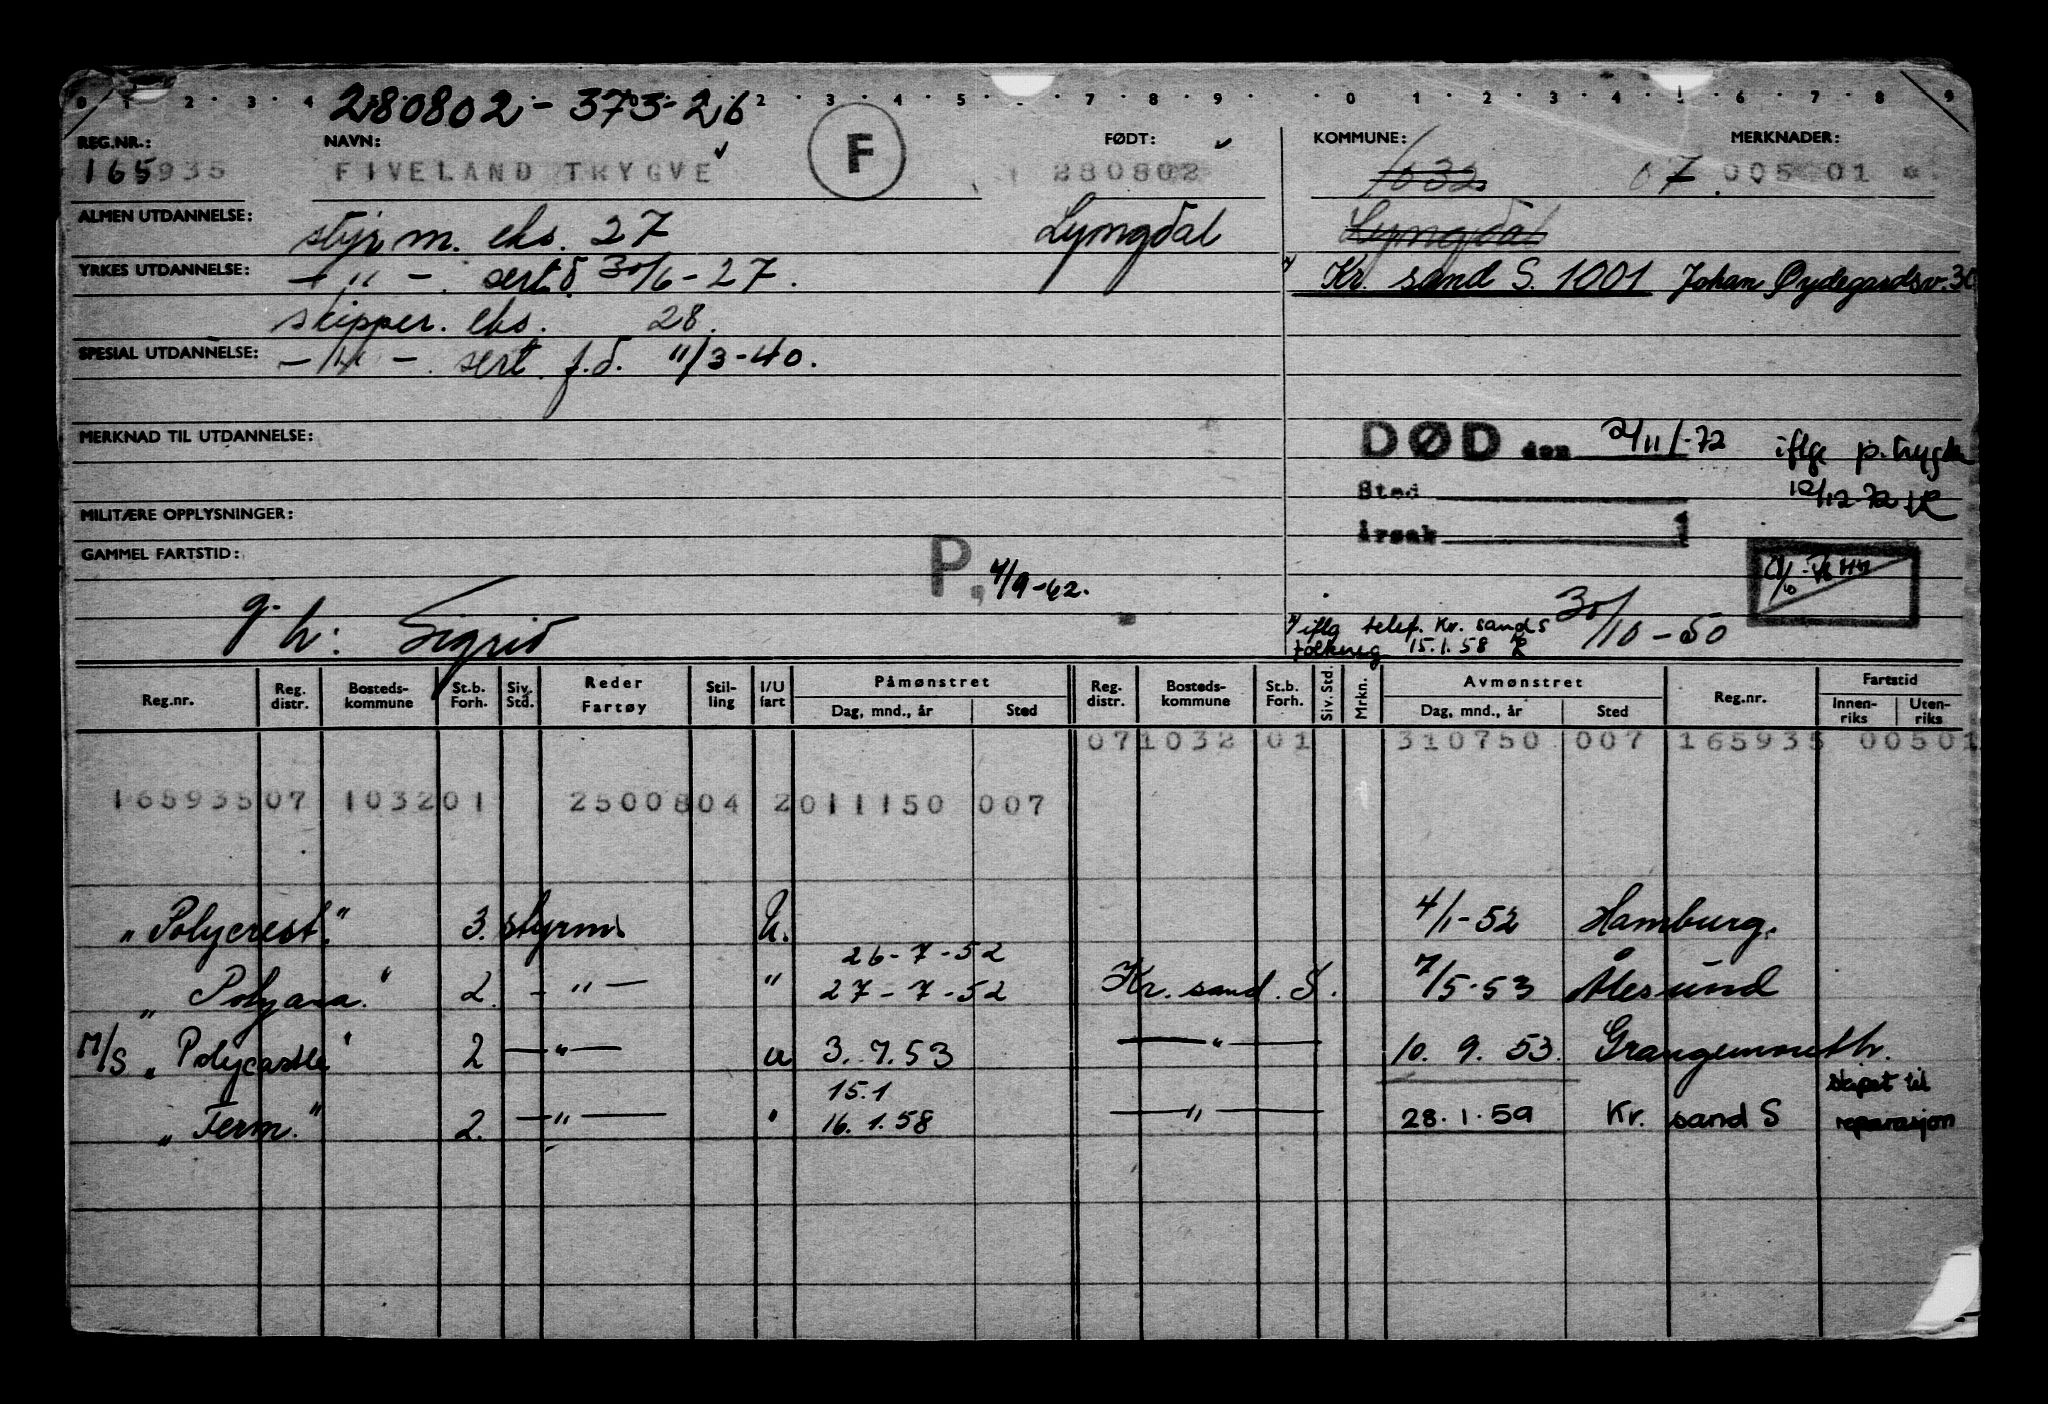 0 1 2 3 4 2 3 4 5 7 8 9 0 1 2 3 4 5 6 7 8 9
280802 - 373-26
REG.NR.: NAVN: FØDT: KOMMUNE: MERKNADER:
165935 FIVELAND TRYGVE F 280802 1032 07 005 01 *
ALMEN UTDANNELSE: styrm. eks. 27 Lyngdal Lyngdal
YRKES UTDANNELSE: - " - sert. d. 30/6-27. Kr. sand S. 1001 Johan Øydegardsv. 30
skipper. eks. 28.
SPESIAL UTDANNELSE: - " - sert. f.d. 11/3-40.
MERKNAD TIL UTDANNELSE: DØD den 2/11-72 iflge p.trygden
Sted 12/12-72
MILITÆRE OPPLYSNINGER:
Årsak
GAMMEL FARTSTID: P. 4/9-62.
g. h: Sigrid
iflg telef. Kr. sand S 30/10-50
folkereg 15.1.58
Reg.nr. Reg. distr. Bosteds-kommune St.b. Forh. Siv. Std. Reder Fartøy Stil-ling I/U fart Påmønstret Dag, mnd., år Sted Reg. distr. Bosteds-kommune St.b. Forh. Siv. Std. Mrkn. Avmønstret Dag, mnd., år Sted Reg.nr. Fartstid Innen-riks Uten-riks
071032 01 310750 007 165935 00501
16593507 103201 2500804 2011150 007
"Polycrest." 3. styrm. U. 4/1-52 Hamburg.
26-7-52
"Polyana." 2. - " - " 27-7-52 Kr. sand. S. 7/5-53 Ålesund
M/S "Polycastle" 2 - " - u 3.7.53 - " - 10. 9. 53. Grangemouth.
15.1 skipet til
"Ferm." 2. - " - " 16.1.58 - " - 28.1.59 Kr. sand S reparasjon